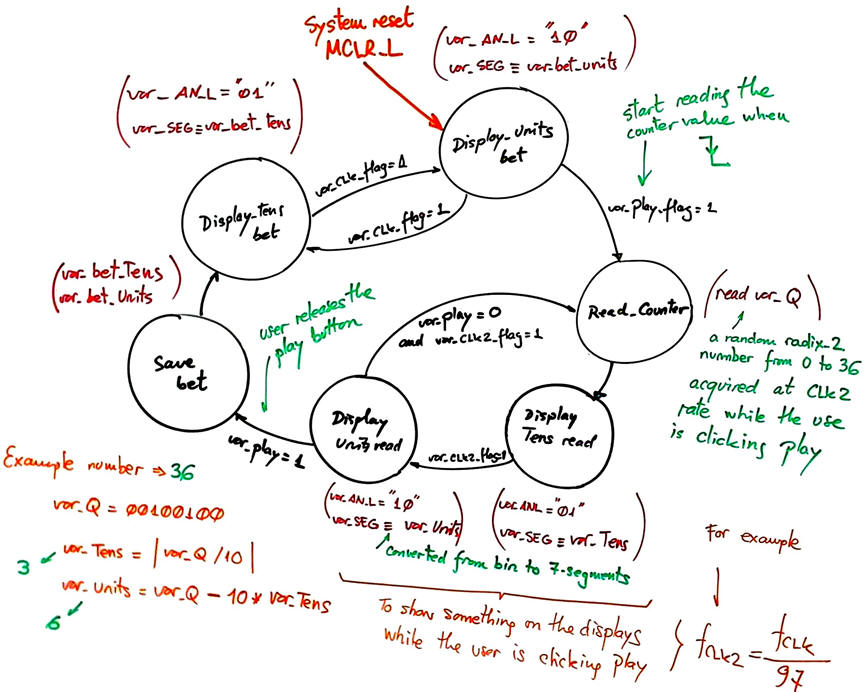 System reset
MCLR_L
(var_AN_L = "10"
var_SEG ≡ var_bet_units)
(var_AN_L = "01"
var_SEG ≡ var_bet_Tens)
start reading the
counter value when
Display_Units
bet
var_CLK_flag = 1
Display_Tens
bet
var_CLK_flag = 1
var_play_flag = 1
(var_bet_Tens
var_bet_Units)
user releases the
play button
var_play = 0
and var_CLK2_flag = 1
Read_Counter
(read var_Q)
a random radix_2
number from 0 to 36
acquired at CLK2
rate while the use
is clicking play
Save
bet
Display
Units read
Display
Tens read
var_play = 1
var_CLK2_flag=1
Example number ⇒ 36
var_Q = 00100100
3 var_Tens = |var_Q /10|
var_units = var_Q - 10 * var_Tens
6
(var_AN_L = "10"
var_SEG ≡ var_Units)
(var_ANL = "01"
var_SEG ≡ var_Tens)
converted from bin to 7-segments
For example
To show something on the displays
while the user is clicking play
fCLK2 = fCLK / 97